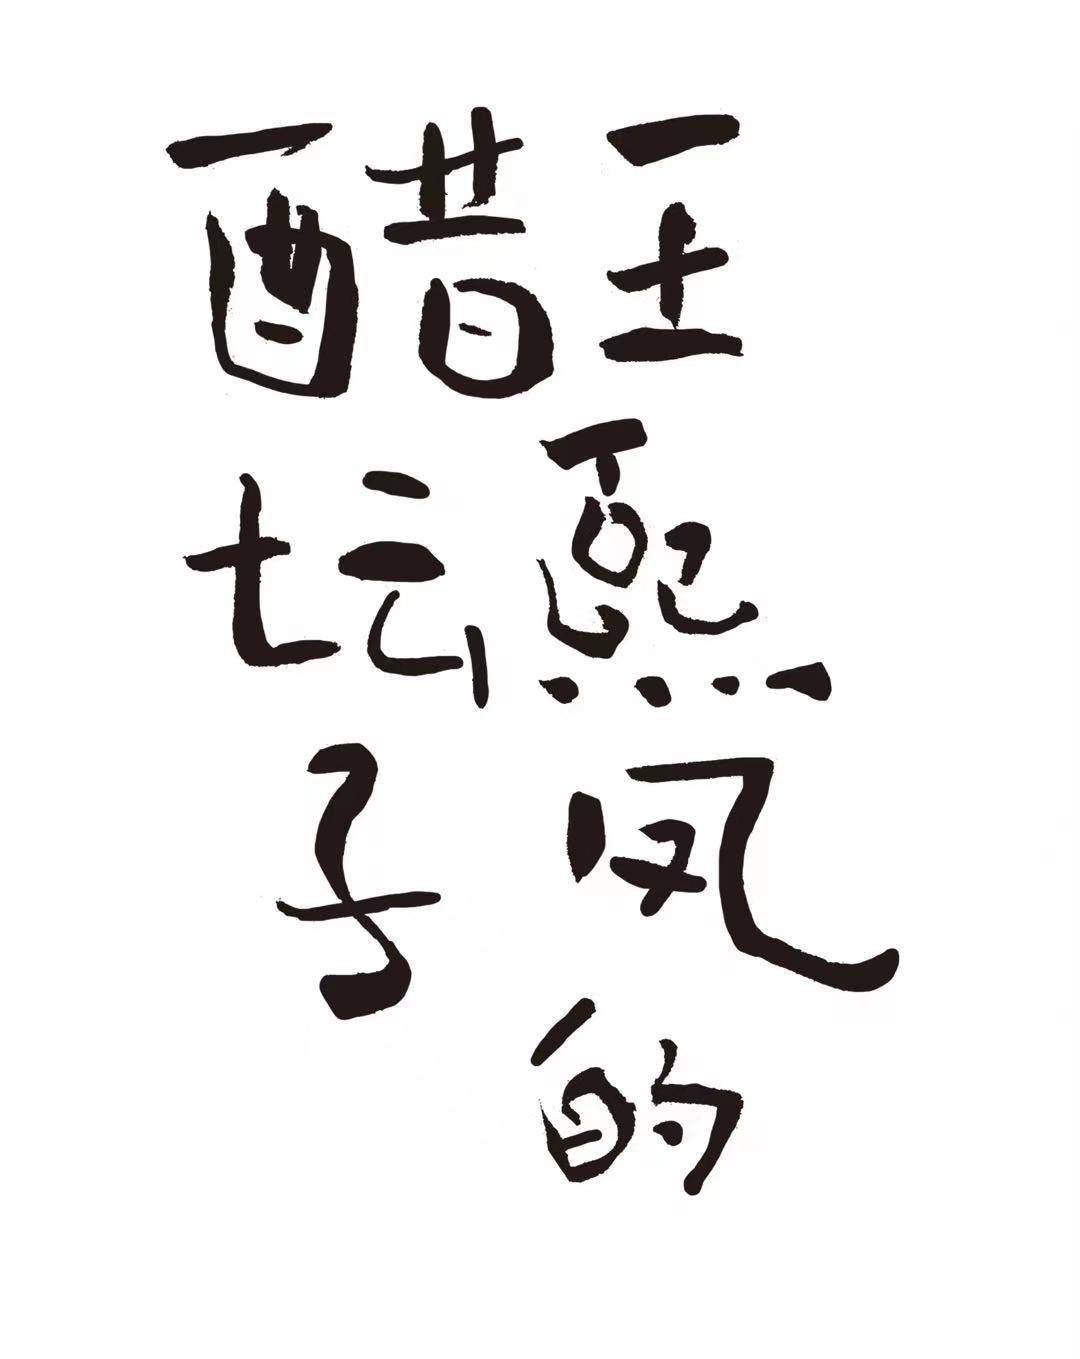 王熙凤的
醋坛子